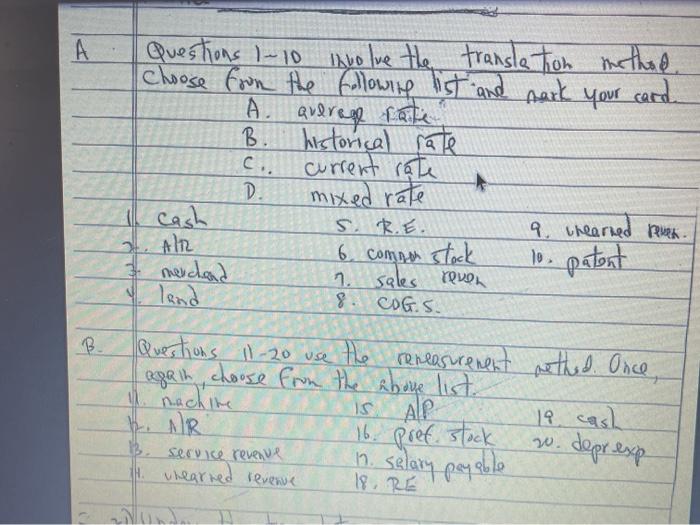 A Questions 1-10 involve the translation method.
Choose from the following list and mark your card.
A. average rate
B. historical rate
C. current rate
D. mixed rate
1. cash 5. R.E. 9. unearned reven.
2. A/R 6. common stock 10. patent
3. merchand 7. sales reven
4. land 8. COG.S.
B. Questions 11-20 use the remeasurement method. Once,
again, choose from the above list.
11. machine 15 A/P 19. cash
12. A/R 16. pref. stock 20. depr exp
13. service revenue 17. salary payable
14. unearned revenue 18. RE